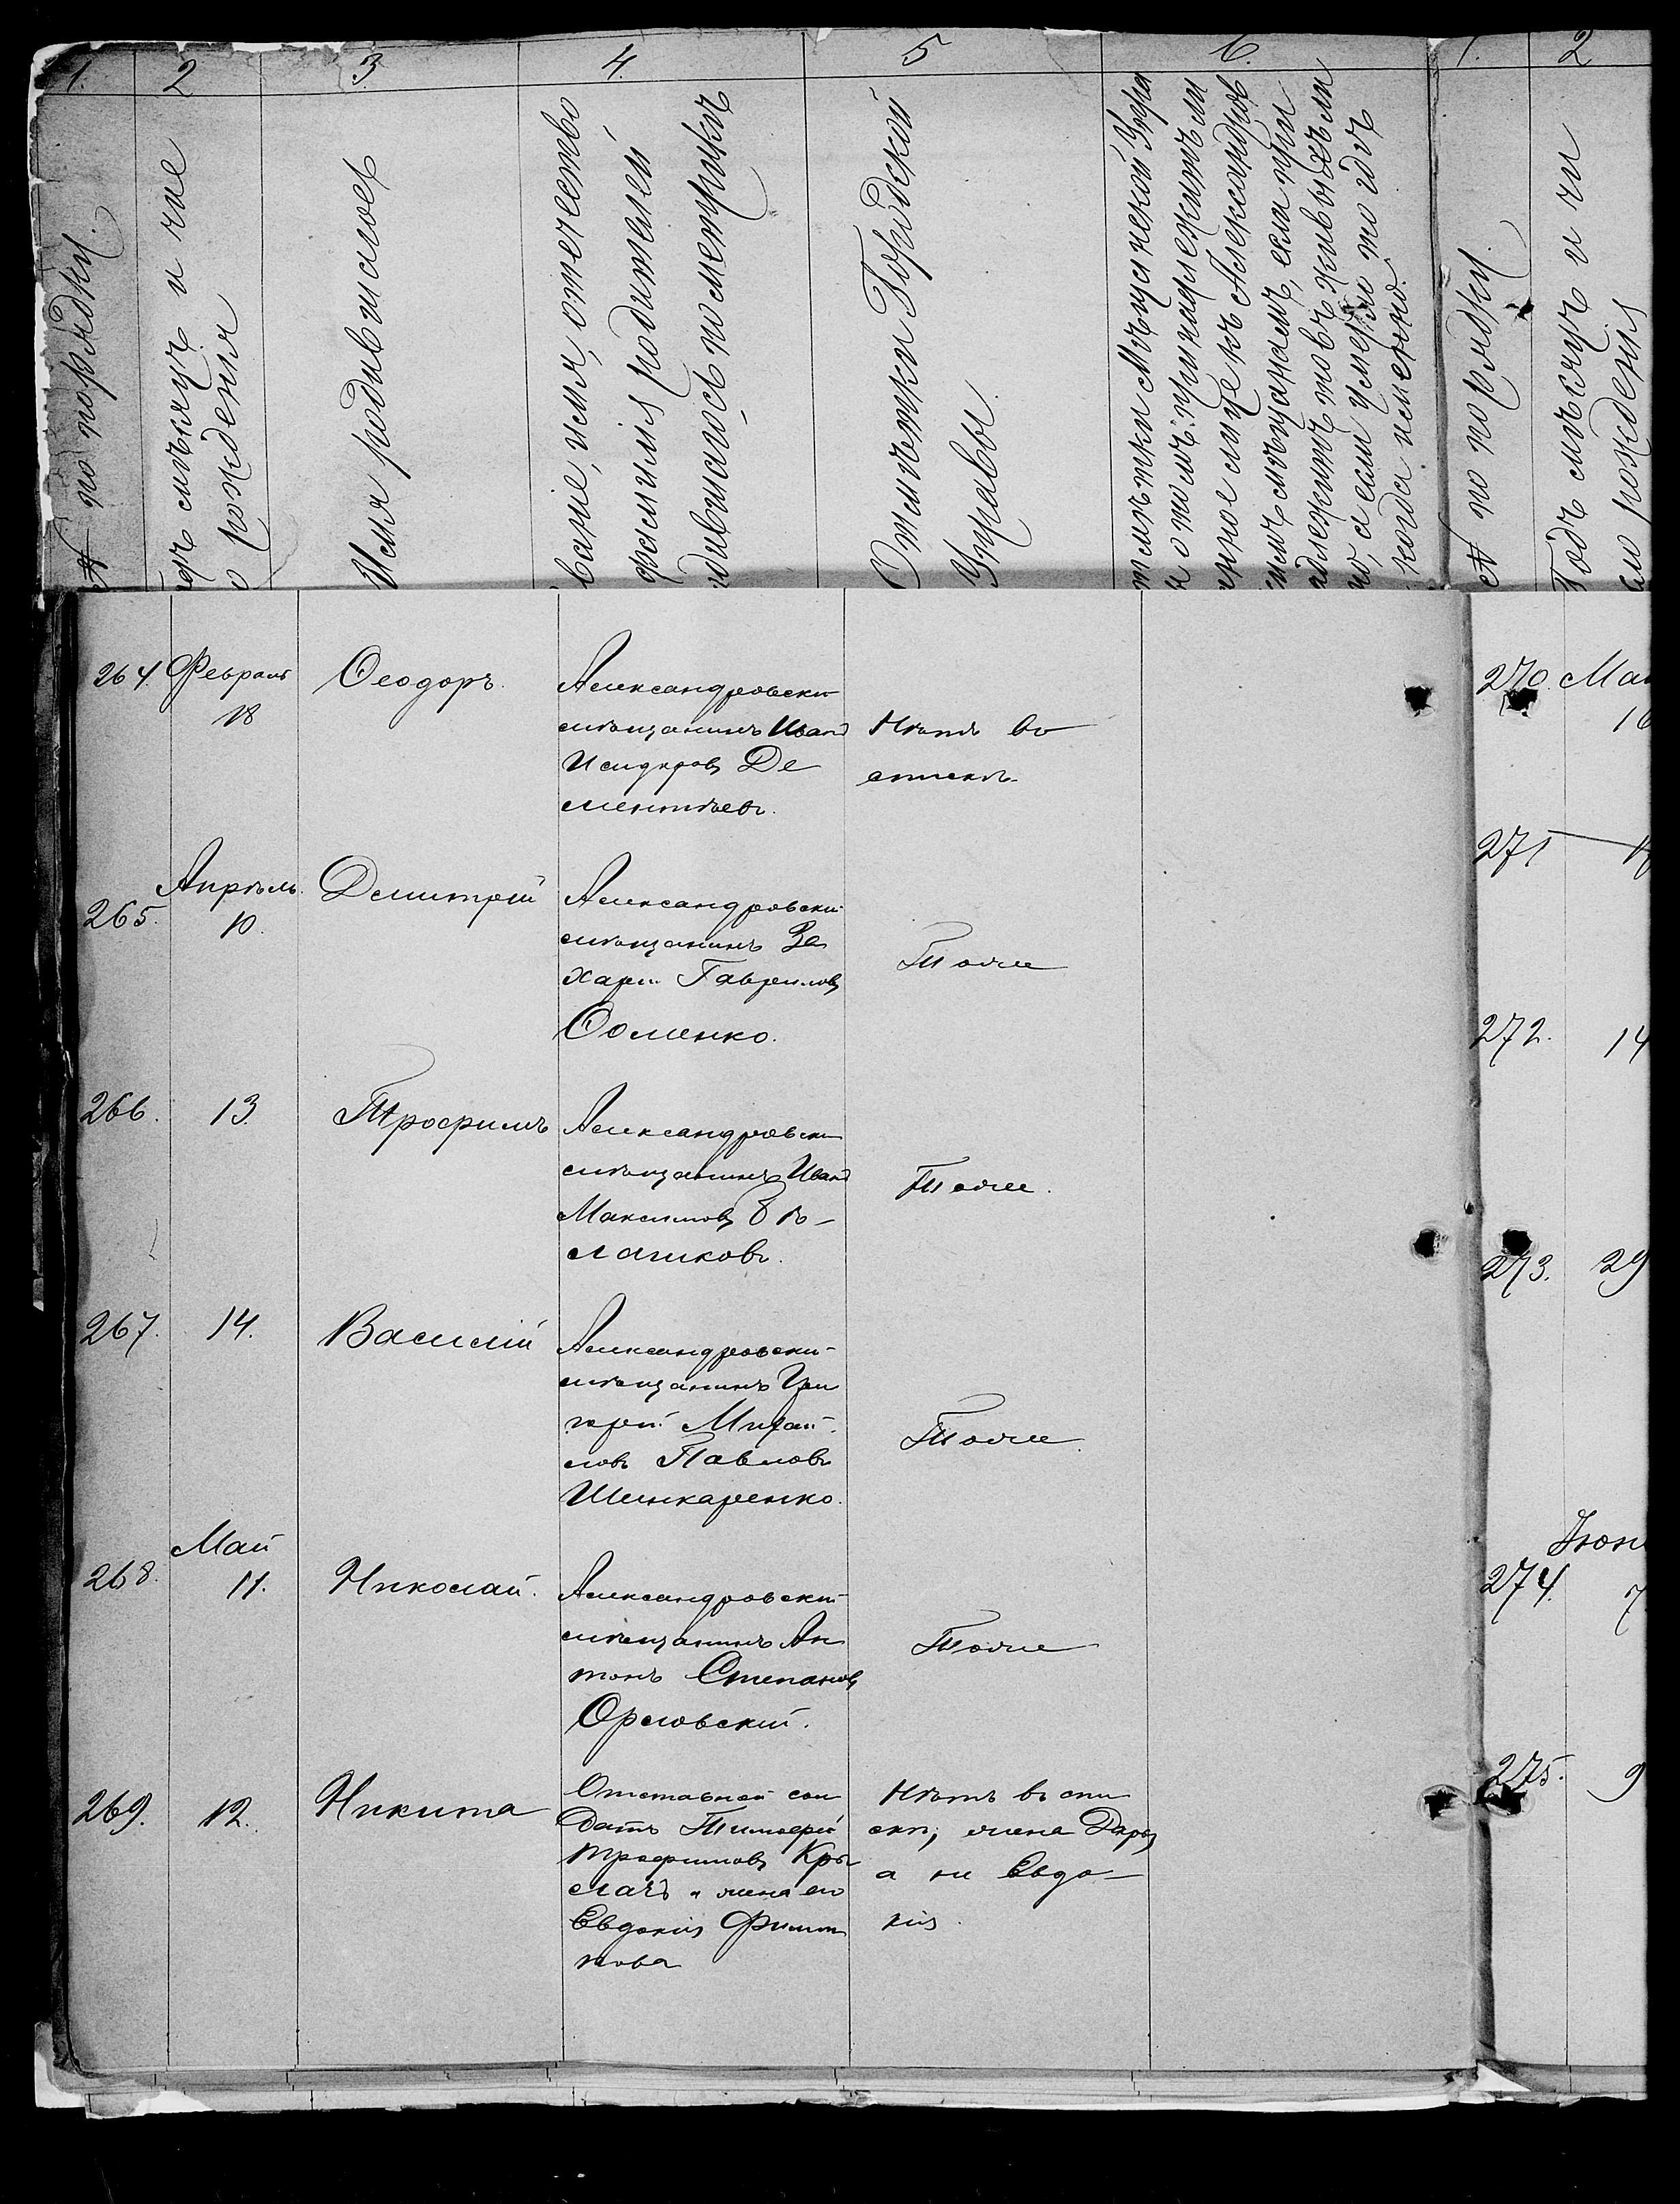 1. 2 3. 4. 5 6. 1. 2
№ по порядку.
мѣсяцъ и чис
рожденія
Имя родившагося
званіе, имя, отечество,
фамилія родителей
родившагося по метрикѣ
Отмѣтки Городской
Управы.
Отмѣтки Мѣщанской Упра
о томъ: принадлежитъ ли
лице къ Александров
мѣщанамъ, если при
надлежитъ то въ живыхъ ли
а если умеръ то гдѣ
когда именно.
№ по порядку.
Годъ мѣсяцъ и чи
сло рожденія
264. Февраль 18 Ѳеодоръ.
Александровскій
мѣщанинъ Иванъ
Исидоровъ Де
ментьевъ.
Нѣтъ въ
спискѣ
265. Апрѣль. 10. Дмитрій
Александровскій
мѣщанинъ За
харій Гавриловъ
Ѳоменко.
Тоже
266. 13. Трофимъ
Александровскій
мѣщанинъ Иванъ
Максимовъ Бѣ-
лашковъ.
Тоже.
267. 14. Василій
Александровскій
мѣщанинъ Гри
горій Михай-
ловъ Павловъ
Шинкаренко.
Тоже.
268. Май 11. Николай.
Александровскій
мѣщанинъ Ан
тонъ Степановъ
Орловскій.
Тоже
269. 12. Никита
Отставной сол
датъ Тимофей
Трофимовъ Кры
лачъ и жена его
Евдокія Филип
пова
Нѣтъ въ спи
скѣ, жена Дарья
а не Евдо-
кія.
270. Май
16
271
272. 14
273. 29
Іюнь
274. 7.
275. 9